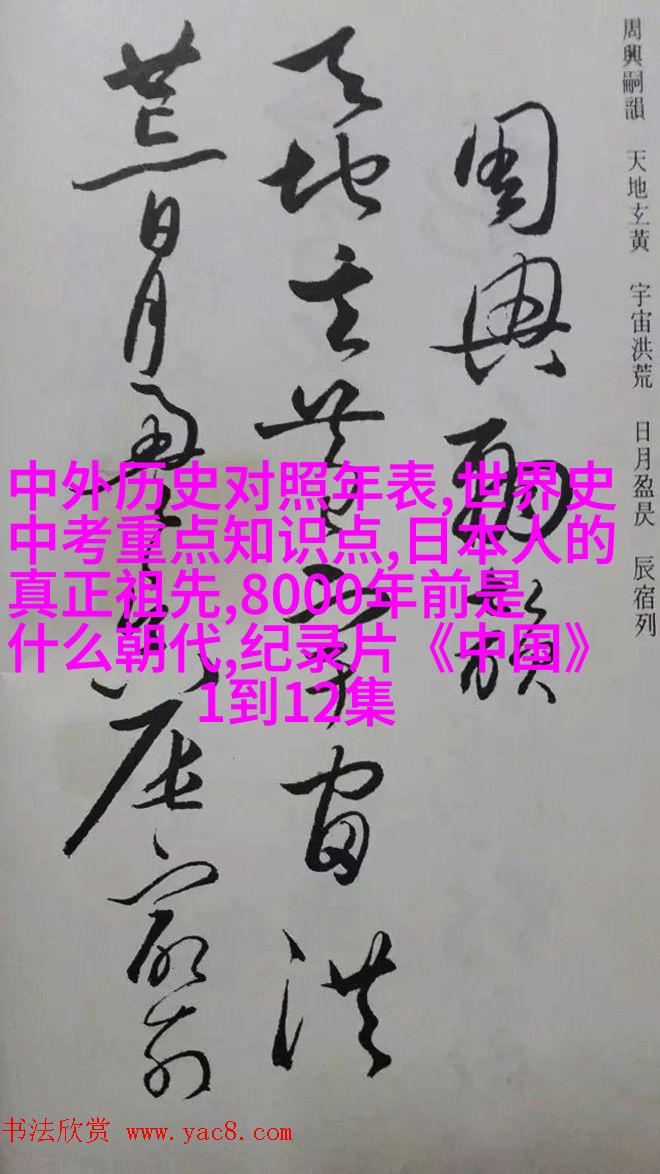 周興嗣韻 天地玄黃 宇宙洪荒 日月盈昃 辰宿列
周興嗣韻
天地玄黃宇宙洪
荒日月盈昃辰宿列
中外历史对照年表,世界史
中考重点知识点,日本人的
真正祖先,8000年前是
什么朝代,纪录片《中国》
1到12集
书法欣赏 www.yac8.com